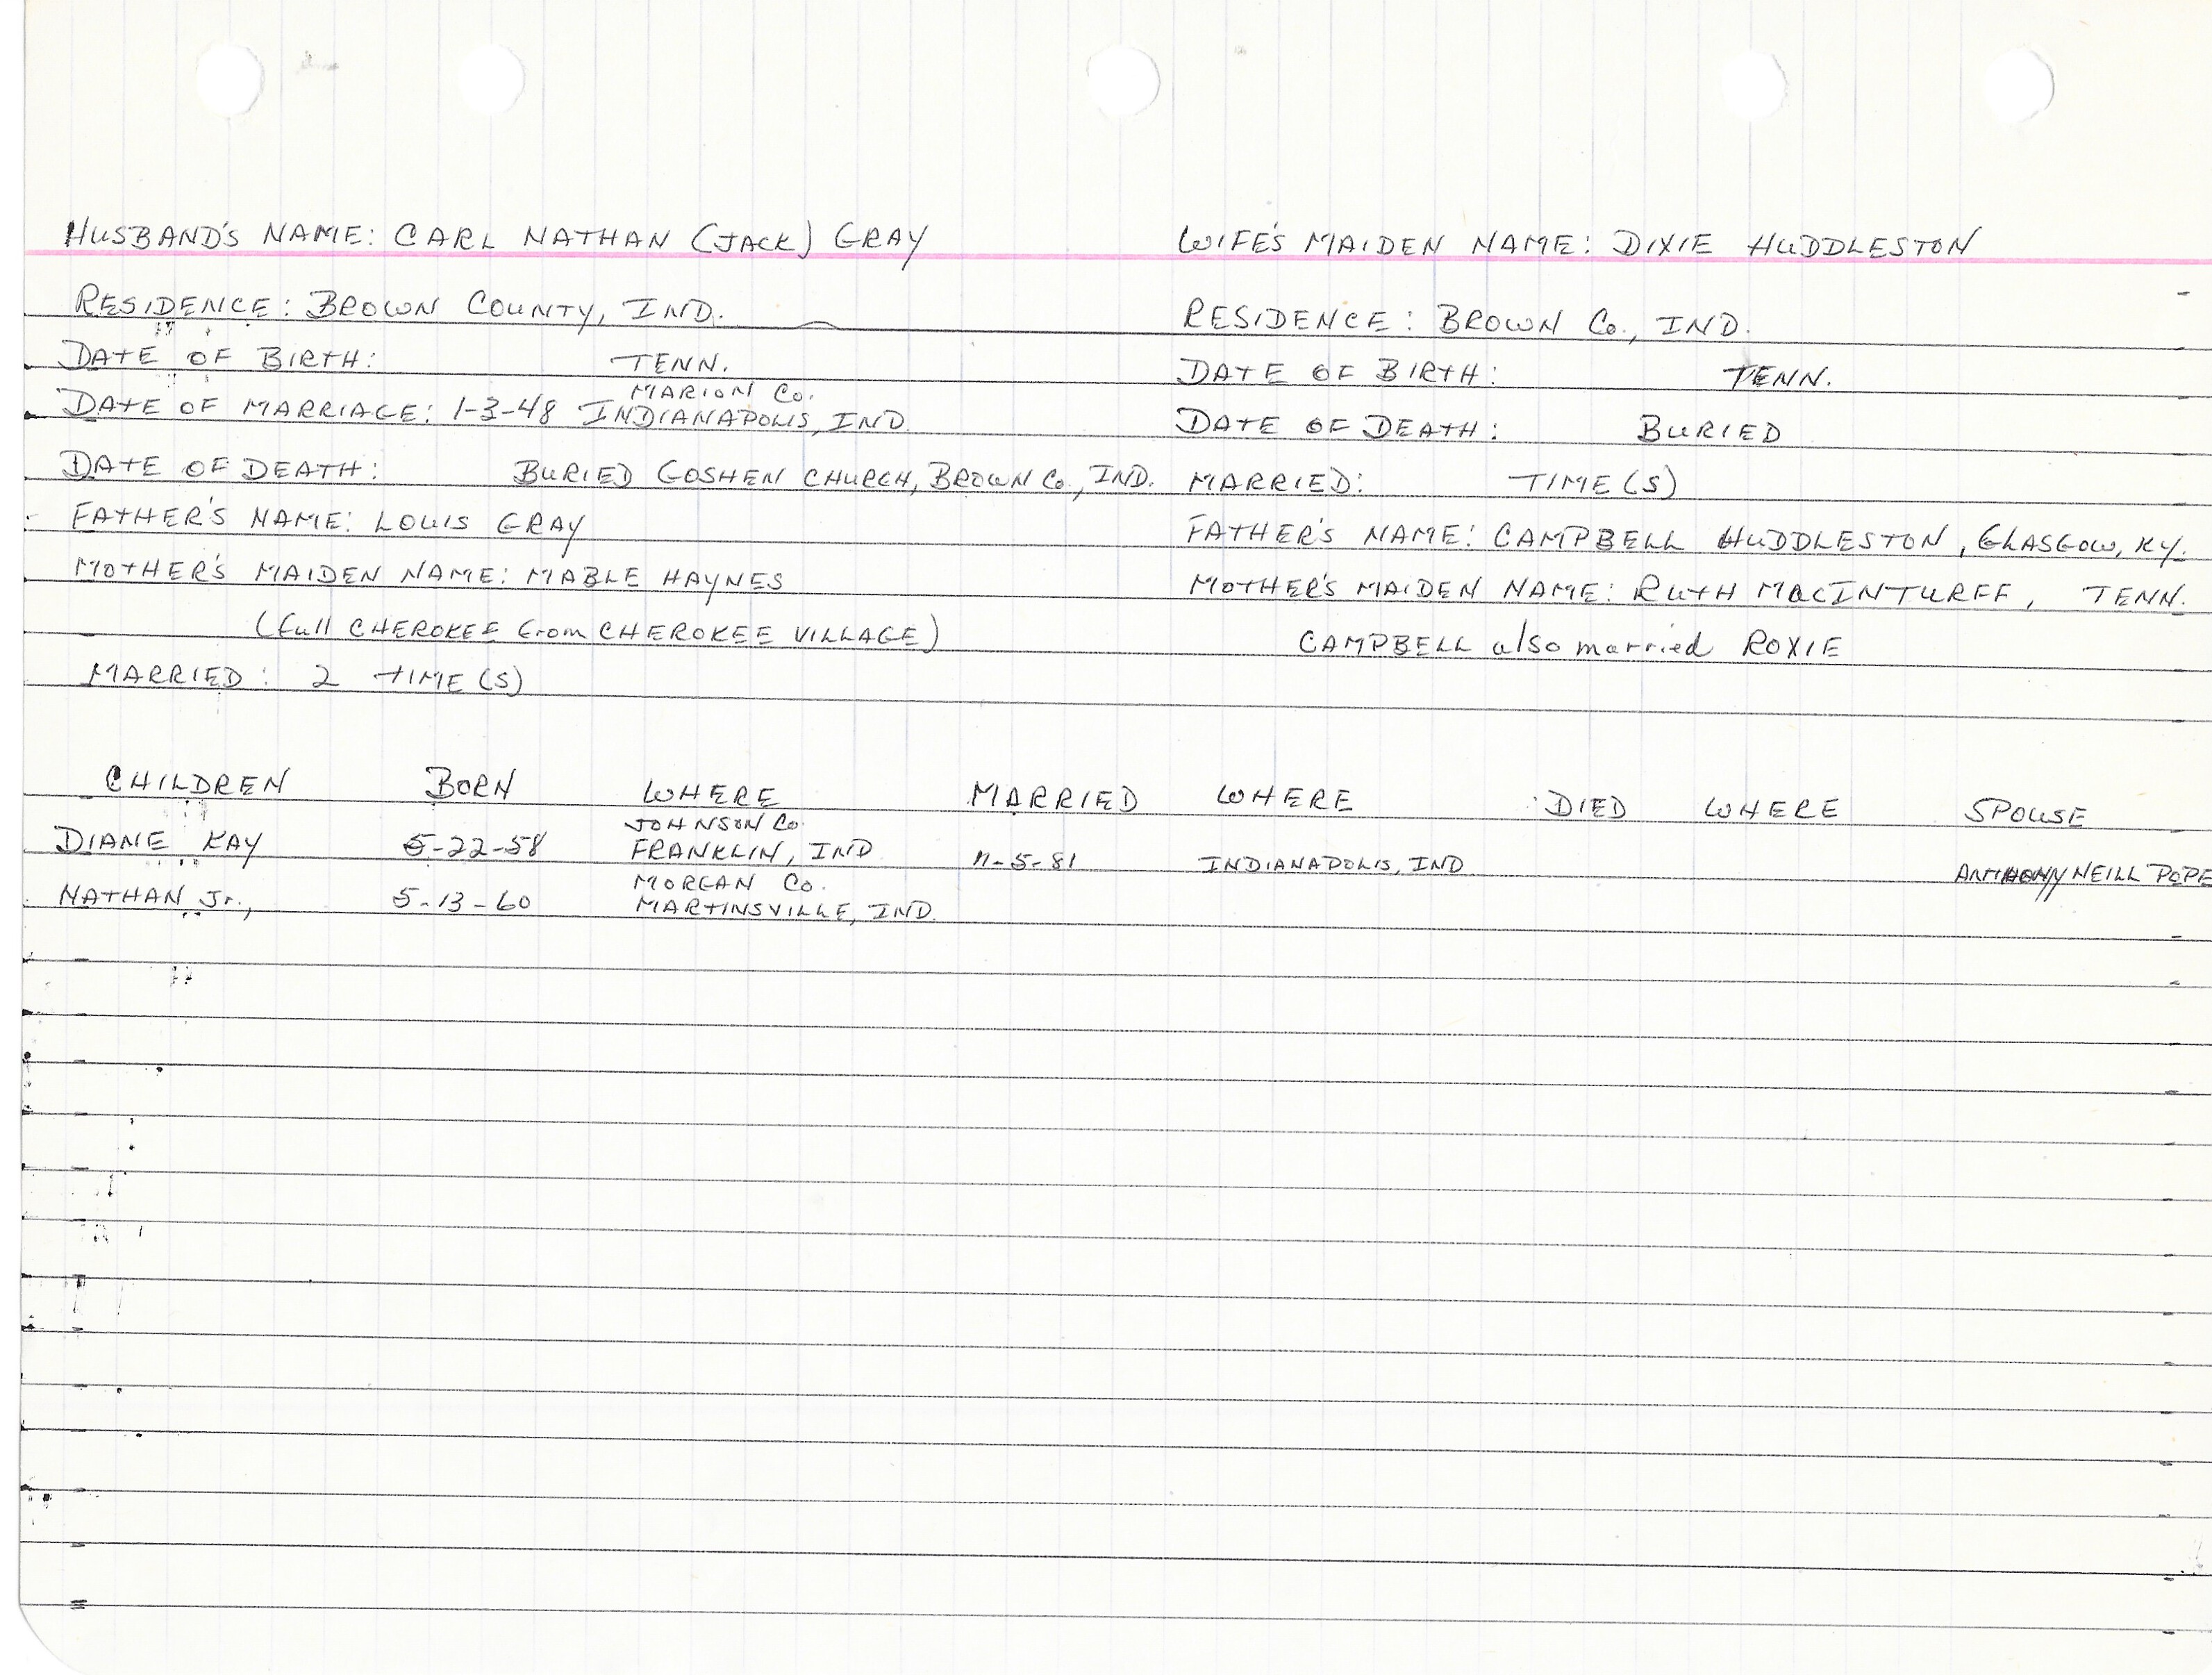 HUSBAND'S NAME: CARL NATHAN (JACK) GRAY
RESIDENCE: BROWN COUNTY, IND.
DATE OF BIRTH: TENN.
MARION Co.
DATE OF MARRIAGE: 1-3-48 INDIANAPOLIS, IND.
DATE OF DEATH: BURIED GOSHEN CHURCH, BROWN Co., IND.
FATHER'S NAME: LOUIS GRAY
MOTHER'S MAIDEN NAME: MABLE HAYNES
(full CHEROKEE from CHEROKEE VILLAGE)
MARRIED: 2 TIME(S)
WIFE'S MAIDEN NAME: DIXIE HUDDLESTON
RESIDENCE: BROWN Co., IND.
DATE OF BIRTH: TENN.
DATE OF DEATH: BURIED
MARRIED: TIME(S)
FATHER'S NAME: CAMPBELL HUDDLESTON, GLASGOW, KY.
MOTHER'S MAIDEN NAME: RUTH MacINTURFF, TENN.
CAMPBELL also married ROXIE
CHILDREN BORN WHERE MARRIED WHERE DIED WHERE SPOUSE
JOHNSON Co.
DIANE KAY 5-22-58 FRANKLIN, IND 11-5-81 INDIANAPOLIS, IND ANTHONY NEILL POPE
MORGAN Co.
NATHAN Jr., 5-13-60 MARTINSVILLE, IND.